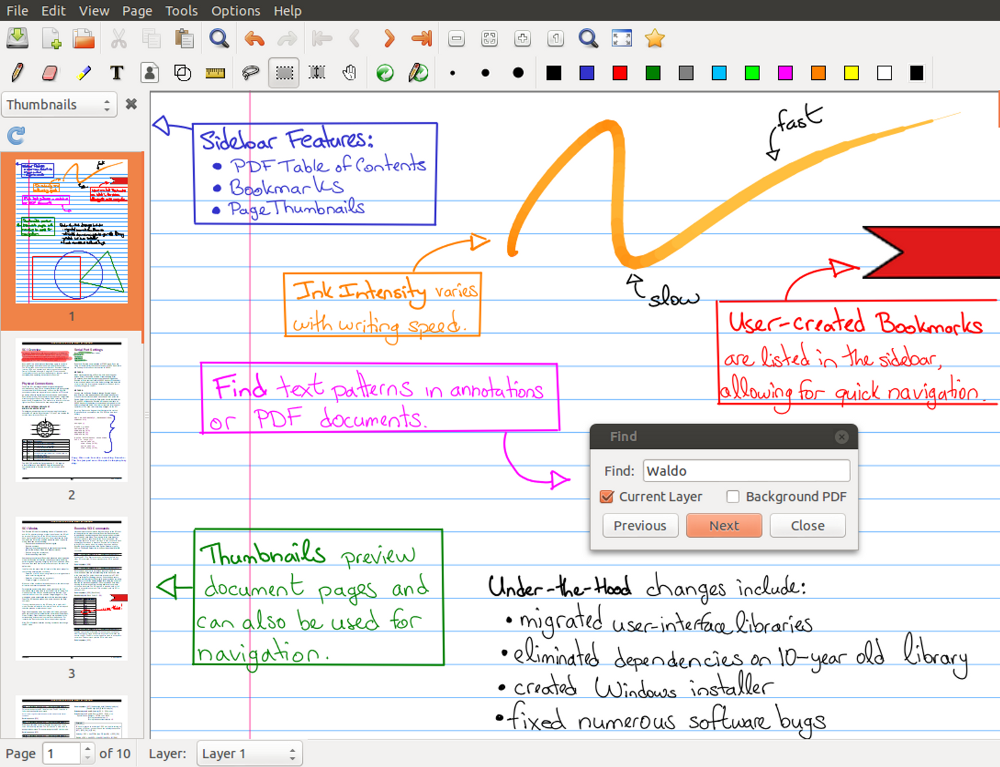 File Edit View Page Tools Options Help
Thumbnails
Sidebar Features:
• PDF Table of Contents
• Bookmarks
• Page Thumbnails
fast
slow
Ink Intensity varies
with writing speed.
User-created Bookmarks
are listed in the sidebar,
allowing for quick navigation.
Find text patterns in annotations
or PDF documents.
Find
Find: Waldo
Current Layer Background PDF
Previous Next Close
Thumbnails preview
document pages and
can also be used for
navigation.
Under-the-Hood changes include:
• migrated user-interface libraries
• eliminated dependencies on 10-year old library
• created Windows installer
• fixed numerous software bugs
1
2
3
Page 1 of 10 Layer: Layer 1